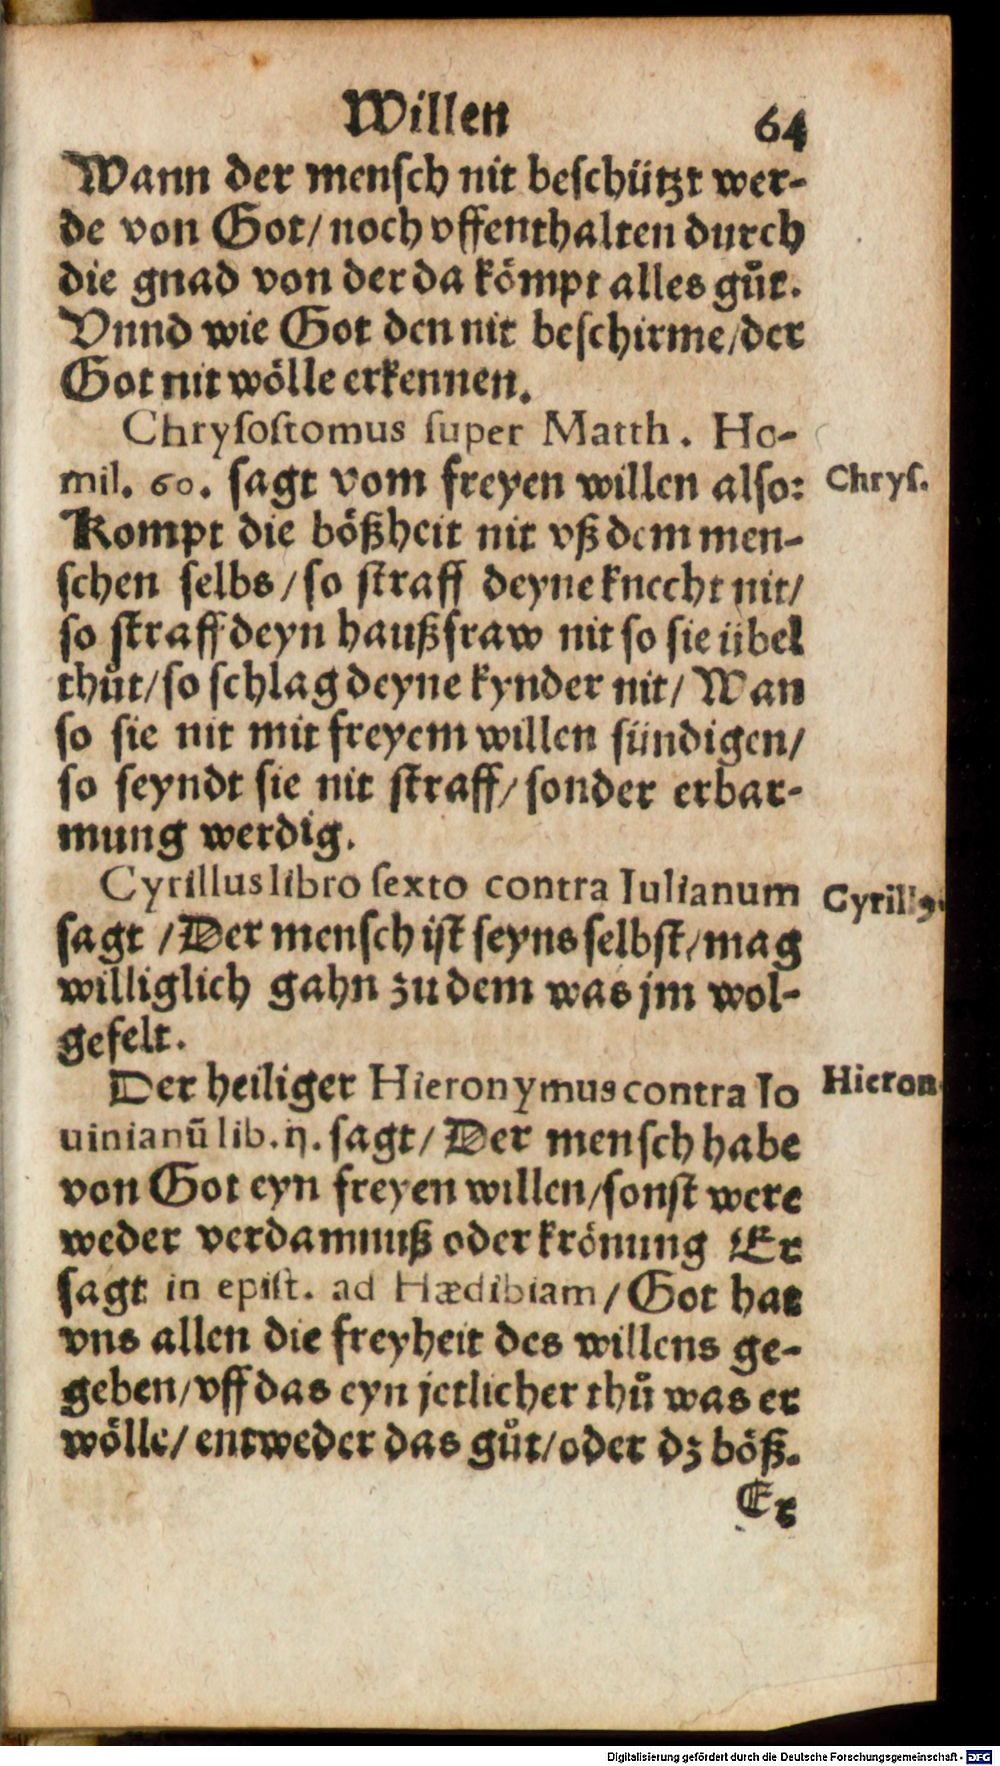 Willen 64
Wann der mensch nit beschützt wer-
de von Got/ noch vffenthalten durch
die gnad von der da kömpt alles gůt.
Vnnd wie Got den nit beschirme/der
Got nit wölle erkennen.
Chrysostomus super Matth. Ho-
mil. 60. sagt vom freyen willen also:
Chrys.
Kompt die bößheit nit vß dem men-
schen selbs/ so straff deyne knecht nit/
so straff deyn haußfraw nit so sie übel
thůt/ so schlag deyne kynder nit/ Wan
so sie nit mit freyem willen sündigen/
so seyndt sie nit straff/ sonder erbar-
mung werdig.
Cyrillus libro sexto contra Iulianum
Cyrillꝰ.
sagt /Der mensch ist seyns selbst/ mag
williglich gahn zu dem was jm wol-
gefelt.
Der heiliger Hieronymus contra Io
Hieron.
uinianū lib. ij. sagt/ Der mensch habe
von Got eyn freyen willen/sonst were
weder verdamnuß oder krönung Er
sagt in epist. ad Hædibiam/ Got hat
vns allen die freyheit des willens ge-
geben/vff das eyn jetlicher thů was er
wölle/ entweder das gůt/oder dz böß.
Er
Digitalisierung gefördert durch die Deutsche Forschungsgemeinschaft - DFG